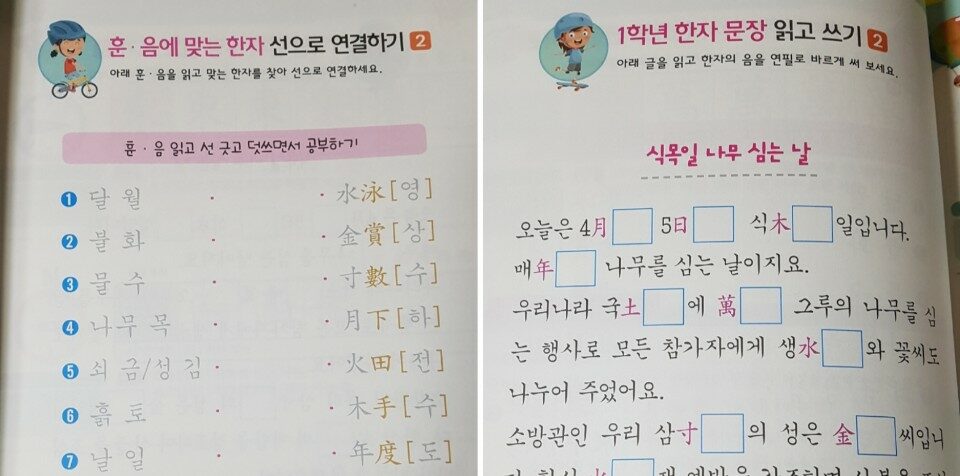 훈 · 음에 맞는 한자 선으로 연결하기 2
아래 훈 · 음을 읽고 맞는 한자를 찾아 선으로 연결하세요.
훈 · 음 읽고 선 긋고 덧쓰면서 공부하기
1 달 월 · · 水泳[영]
2 불 화 · · 金賞[상]
3 물 수 · · 寸數[수]
4 나무 목 · · 月下[하]
5 쇠 금/성 김 · · 火田[전]
6 흙 토 · · 木手[수]
7 날 일 年度[도]
1학년 한자 문장 읽고 쓰기 2
아래 글을 읽고 한자의 음을 연필로 바르게 써 보세요.
식목일 나무 심는 날
오늘은 4月 5日 식木 일입니다.
매年 나무를 심는 날이지요.
우리나라 국土 에 萬 그루의 나무를 심
는 행사로 모든 참가자에게 생水 와 꽃씨도
나누어 주었어요.
소방관인 우리 삼寸 의 성은 金 씨입니